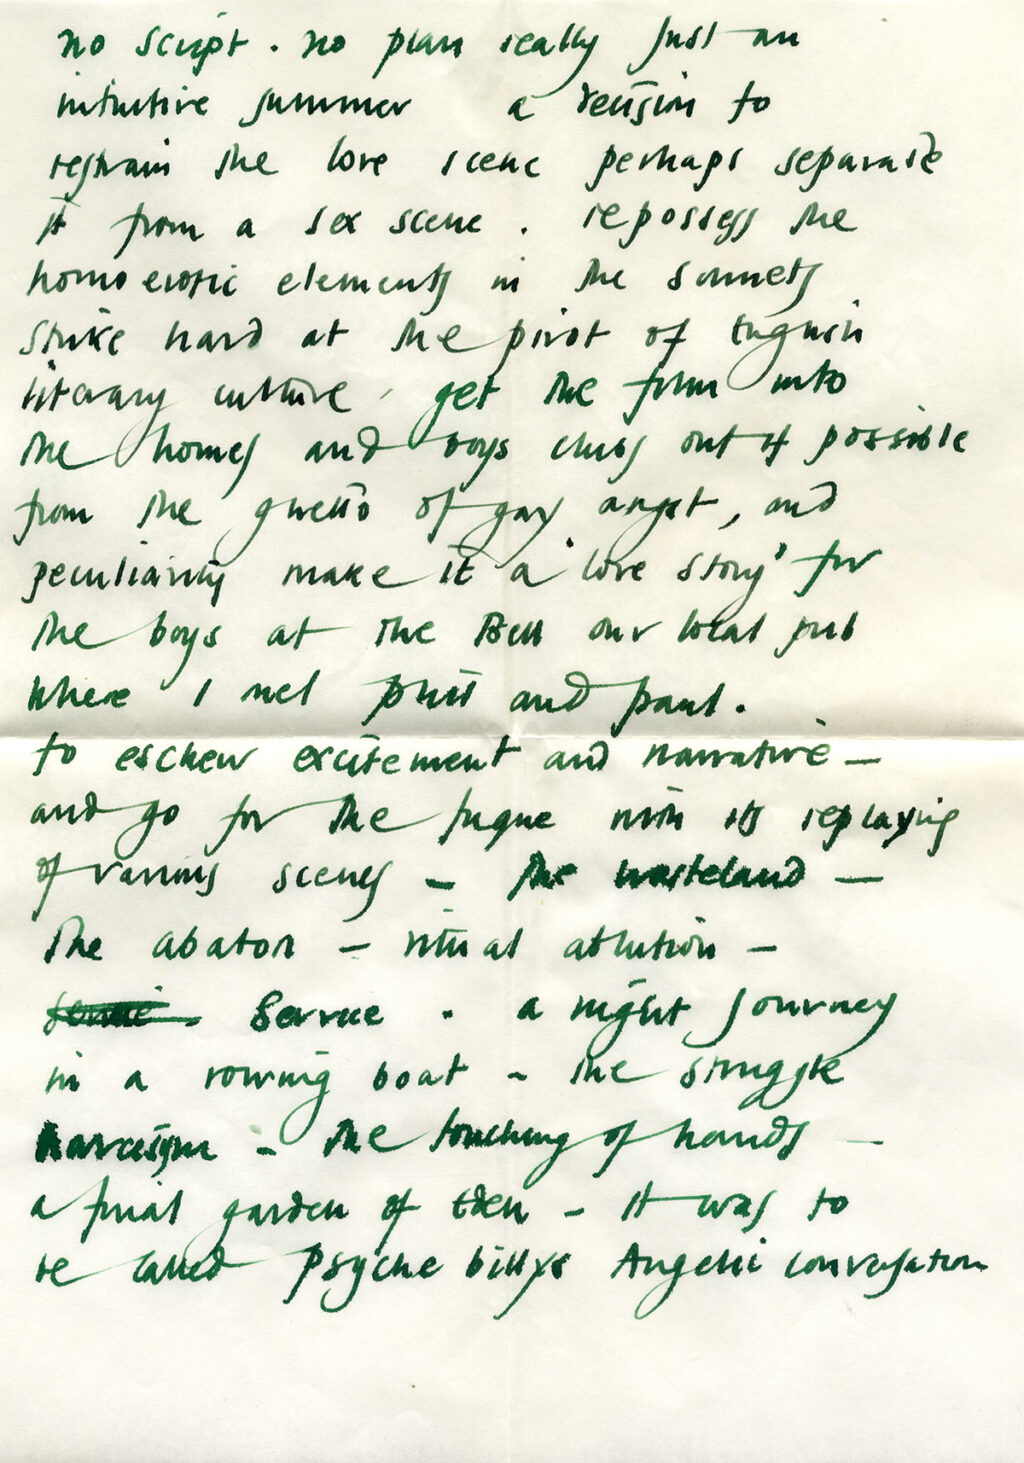 no script. no plan really just an
intuitive summer a decision to
restrain the love scene perhaps separate
it from a sex scene. repossess the
homo erotic elements in the sonnets
strike hard at the pivot of English
literary culture, get the film into
the homes and boys clubs out if possible
from the ghetto of gay angst, and
peculiarity make it a 'love story' for
the boys at the Bell our local pub
where I met phil and paul.
to eschew excitement and narrative —
and go for the fugue with its replaying
of various scenes — the wasteland —
The abaton — ritual ablution —
Service . a night journey
in a rowing boat - the struggle
narcisism - the touching of hands —
a final garden of Eden - it was to
be called Psyche billys Angelic conversation